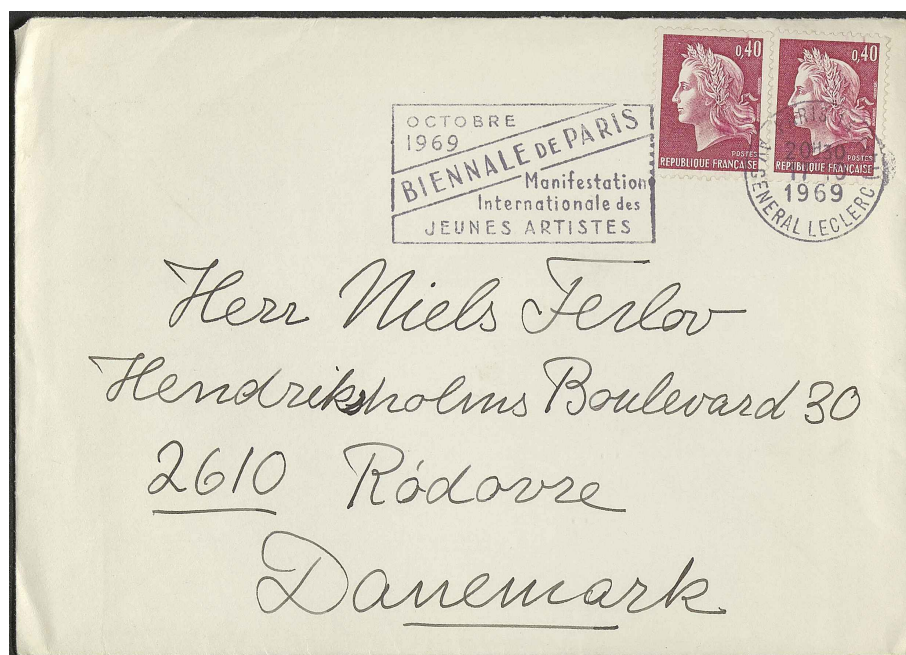 OCTOBRE
1969
BIENNALE DE PARIS
Manifestation
Internationale des
JEUNES ARTISTES
0,40
POSTES
REPUBLIQUE FRANÇAISE
0,40
POSTES
REPUBLIQUE FRANÇAISE
PARIS
20H30
1969
AV. GENERAL LECLERC
Herr Niels Ferlov
Hendriksholms Boulevard 30
2610 Ródovre
Danemark